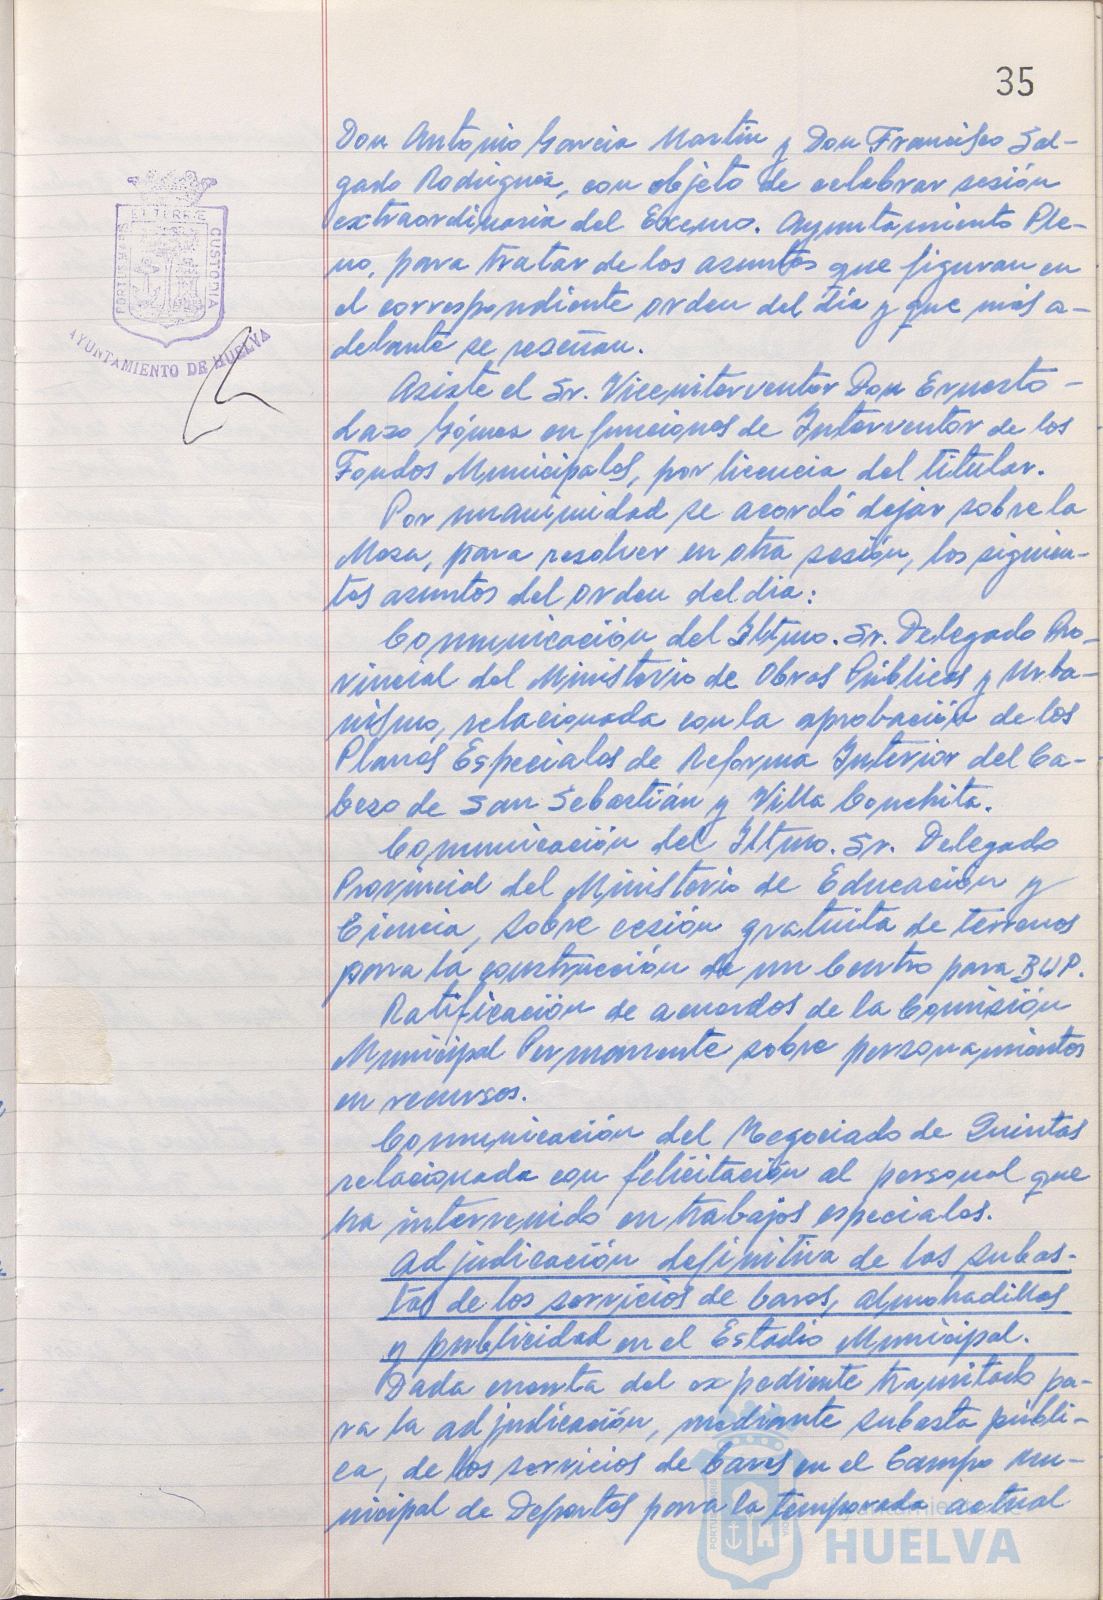 35
Don Antonio Garcia Martin y Don Francisco Sal-
gado Rodriguez, con objeto de celebrar sesión
extraordinaria del Excmo. Ayuntamiento Ple-
no, para tratar de los asuntos que figuran en
el correspondiente orden del día y que más a-
delante se reseñan.
Asiste el Sr. Viceinterventor Don Ernesto
Lazo Gómez en funciones de Interventor de los
Fondos Municipales, por licencia del titular.
Por unanimidad se acordó dejar sobre la
Mesa, para resolver en otra sesión, los siguien-
tes asuntos del orden del dia:
Comunicación del Iltmo. Sr. Delegado Pro-
vincial del Ministerio de Obras Públicas y Urba-
nismo, relacionada con la aprobación de los
Planes Especiales de Reforma Interior del Ca-
bezo de San Sebastián y Villa Conchita.
Comunicación del Iltmo. Sr. Delegado
Provincial del Ministerio de Educación y
Ciencia, sobre cesión gratuita de terrenos
para la construcción de un Centro para BUP.
Ratificación de acuerdos de la Comisión
Municipal Permanente sobre personamientos
en recursos.
Comunicación del Negociado de Quintas
relacionada con felicitación al personal que
ha intervenido en trabajos especiales.
Adjudicación definitiva de las subas-
tas de los servicios de bares, almohadillas
y publicidad en el Estadio Municipal.
Dada cuenta del expediente tramitado pa-
ra la adjudicación, mediante subasta públi-
ca, de los servicios de bares en el Campo Mu-
nicipal de Deportes para la temporada actual
PORTUS MARIS ET TERRE CUSTODIA
AYUNTAMIENTO DE HUELVA
Ayuntamiento de
HUELVA